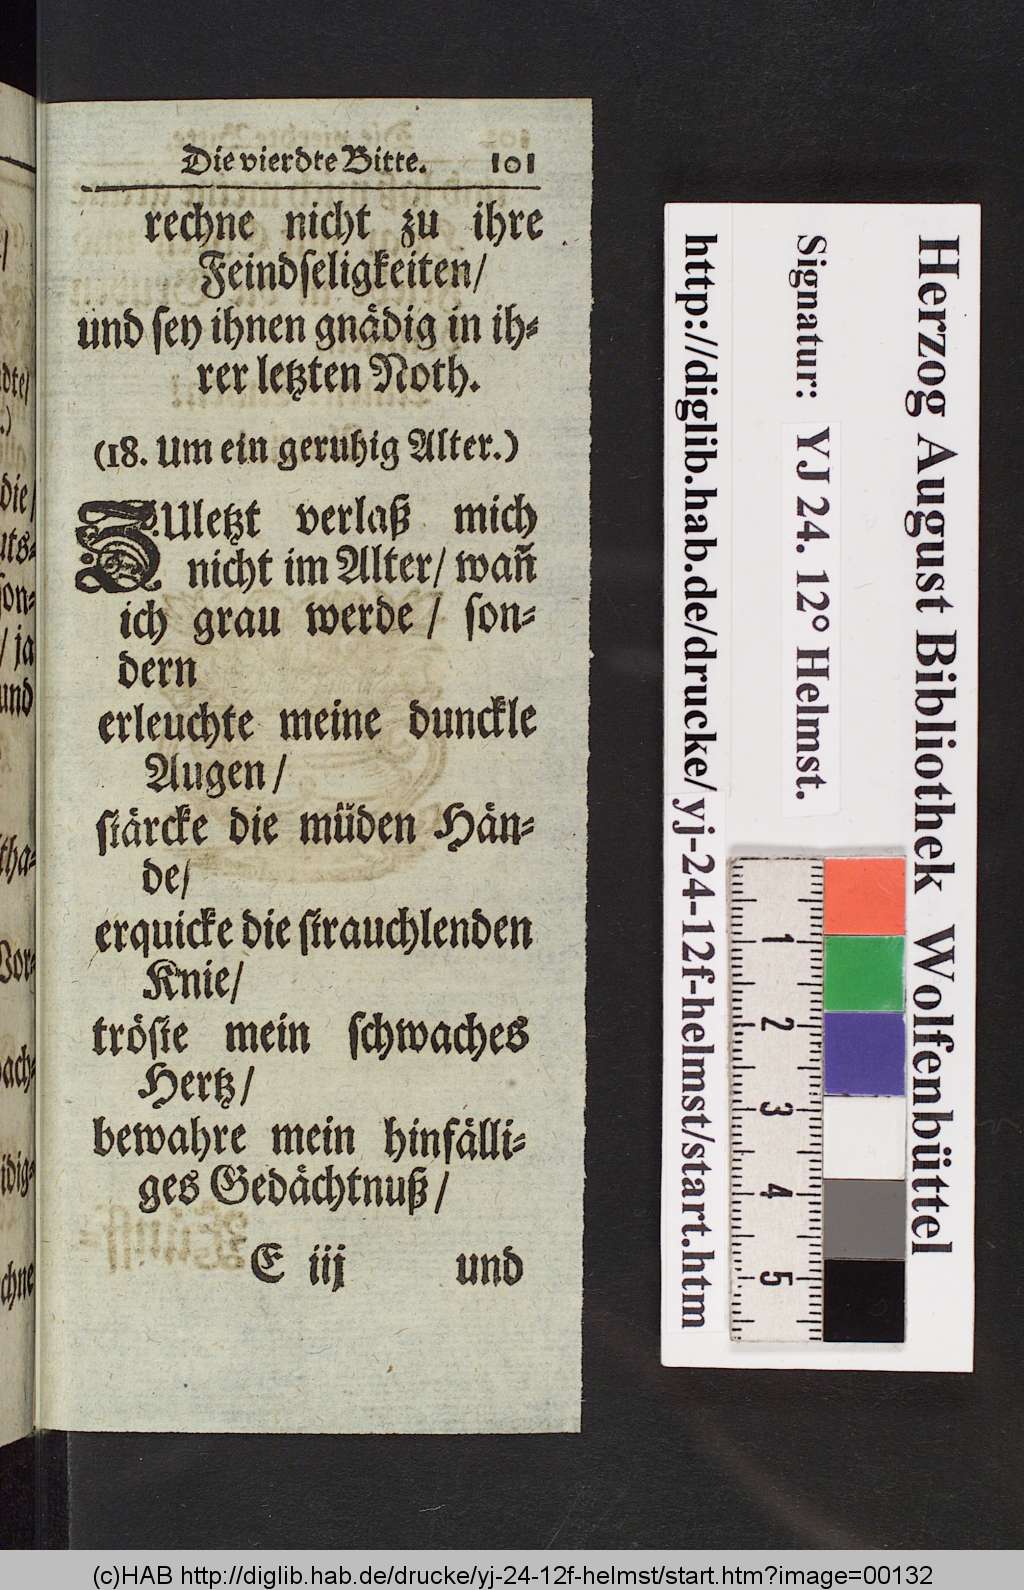 Die vierdte Bitte. 101
rechne nicht zu ihre
Feindseligkeiten/
und sey ihnen gnädig in ih-
rer letzten Noth.
(18. Um ein geruhig Alter.)
ZUletzt verlaß mich
nicht im Alter/ wañ
ich grau werde / son-
dern
erleuchte meine dunckle
Augen /
stärcke die müden Hän-
de/
erquicke die strauchlenden
Knie/
tröste mein schwaches
Hertz/
bewahre mein hinfälli-
ges Gedächtnuß /
E iij und
Herzog August Bibliothek Wolfenbüttel
Signatur: YJ 24. 12° Helmst.
http://diglib.hab.de/drucke/yj-24-12f-helmst/start.htm
1
2
3
4
5
(c)HAB http://diglib.hab.de/drucke/yj-24-12f-helmst/start.htm?image=00132